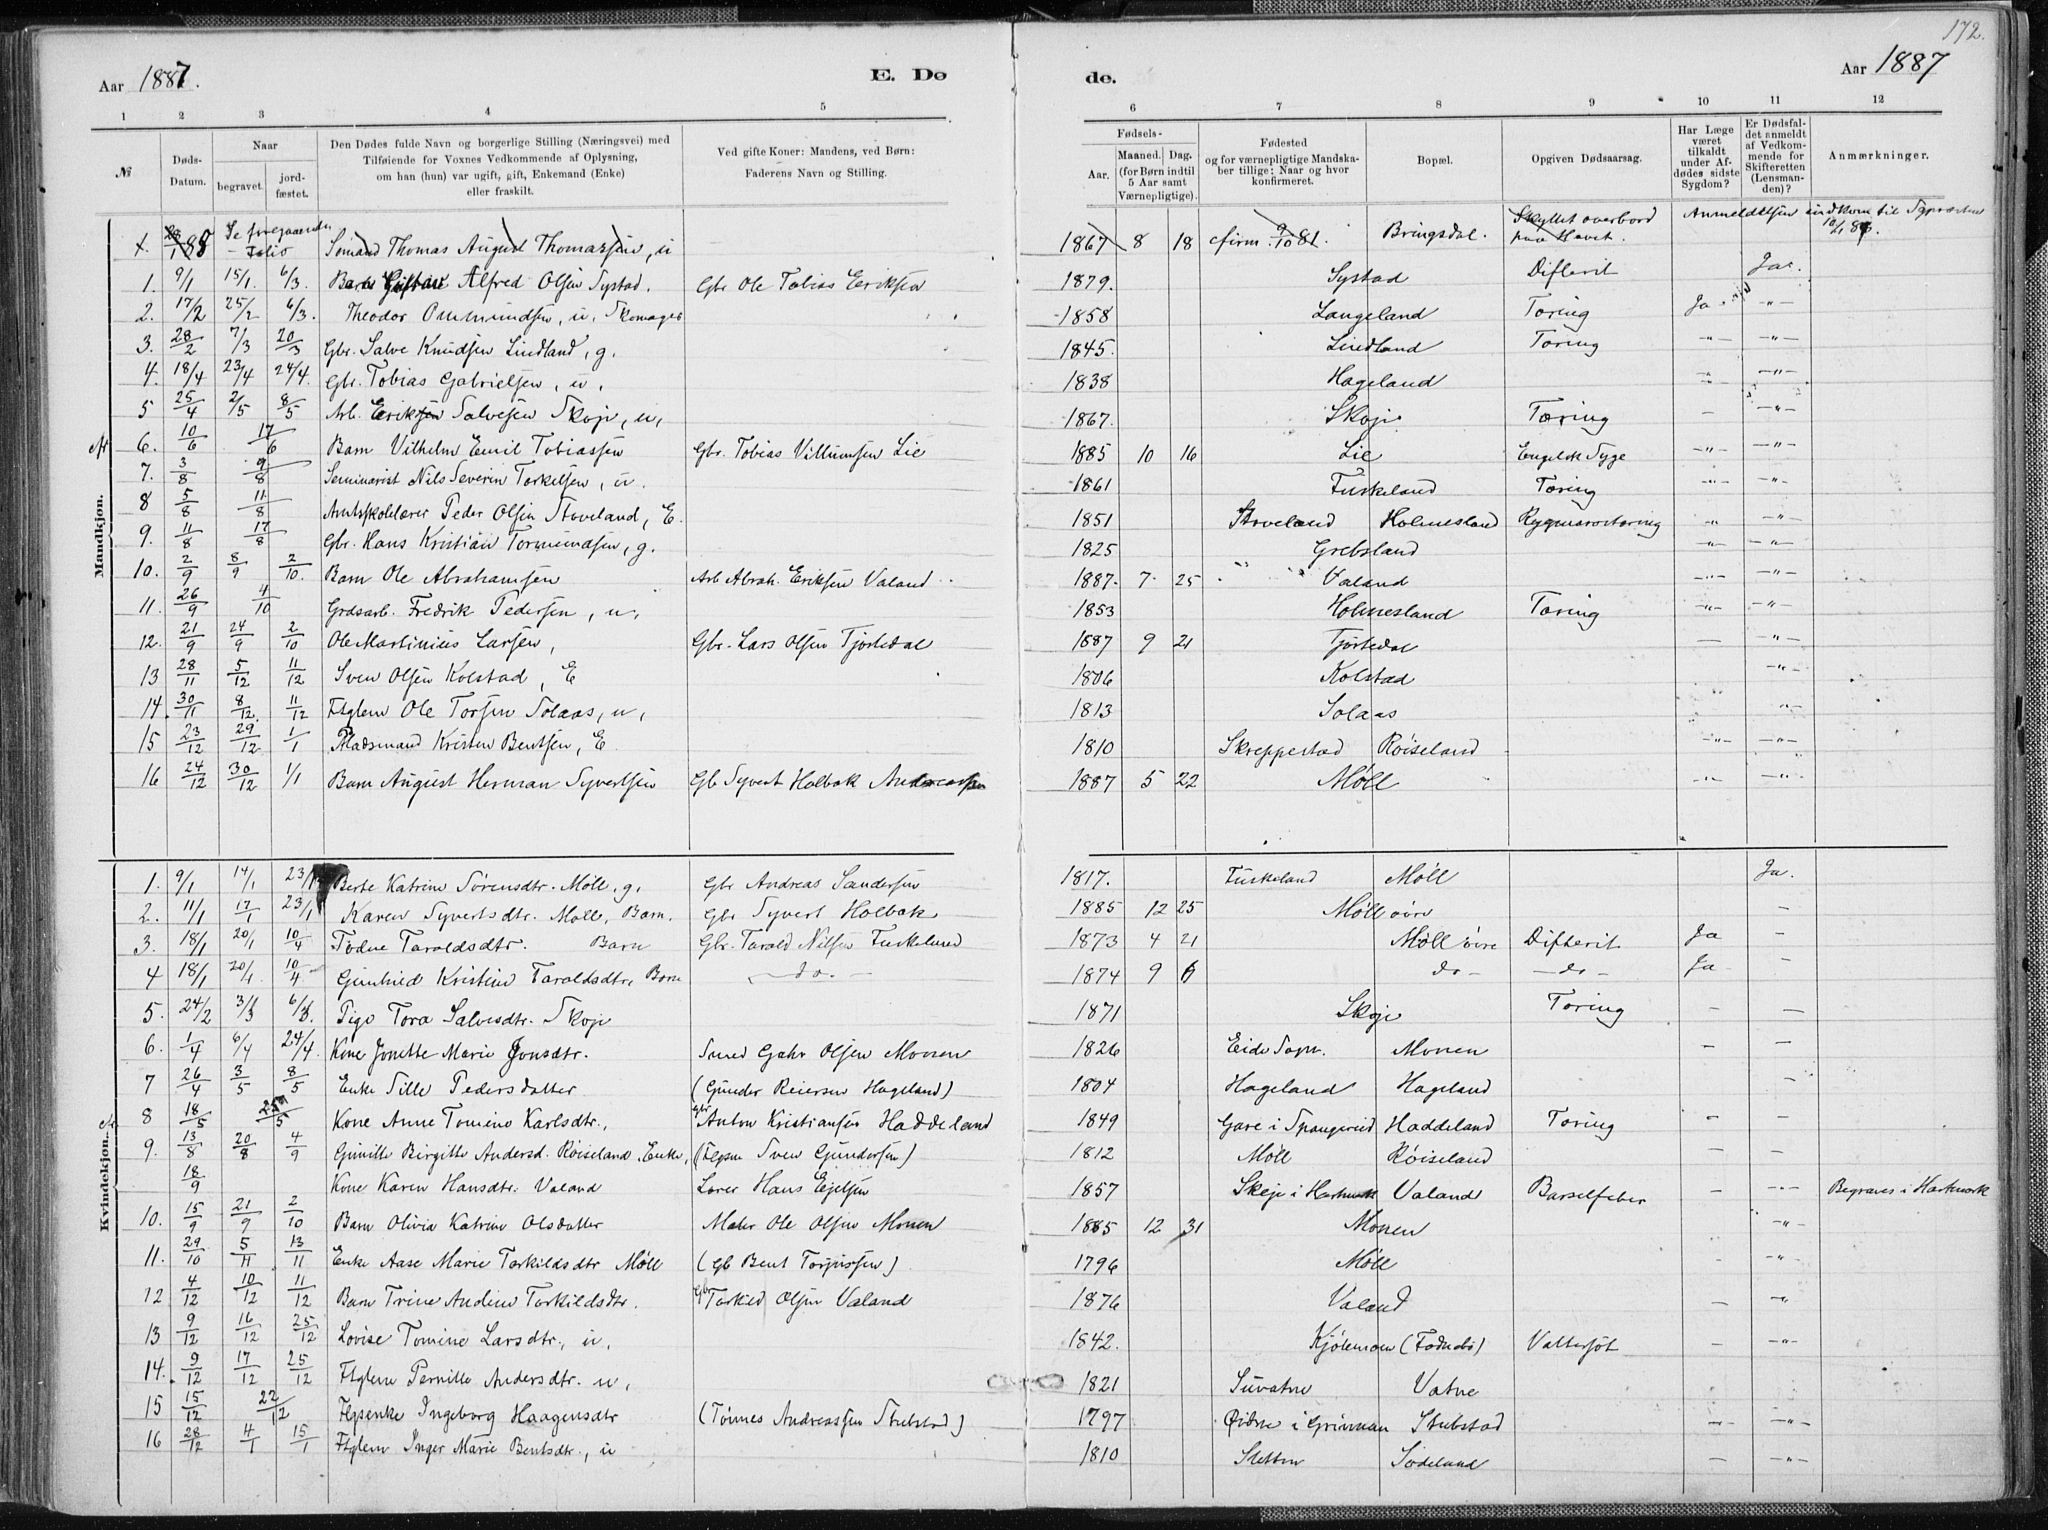 172.
Aar 1887.
E. Dø
de.
Aar 1887
1 2 3 4 5 6 7 8 9 10 11 12
№
Døds-Datum.
Naar
begravet.
jord-fæstet.
Den Dødes fulde Navn og borgerlige Stilling (Næringsvei) med
Tilføiende for Voxnes Vedkommende af Oplysning,
om han (hun) var ugift, gift, Enkemand (Enke)
eller fraskilt.
Ved gifte Koner: Mandens, ved Børn:
Faderens Navn og Stilling.
Fødsels-
Aar.
Maaned. Dag.
(for Børn indtil
5 Aar samt
Værnepligtige).
Fødested
og for værnepligtige Mandska-
ber tillige: Naar og hvor
konfirmeret.
Bopæl.
Opgiven Dødsaarsag.
Har Læge
været
tilkaldt
under Af-
dødes sidste
Sygdom?
Er Dødsfal-
det anmeldt
af Vedkom-
mende for
Skifteretten
(Lensman-
den)?
Anmærkninger.
Mandkjøn.
Se foregaaende Folio Sømand Thomas August Thomassen, u 1867 8 18 cfirm. 9/10 81. Bringsdal. Skyllet overbord paa Havet. Anmeldelsen indkom til Sognepræsten
1. 9/1 15/1. 6/3. Barn Alfred Olsen Systad. Gbr Ole Tobias Eriksen 1879. Systad Difterit Ja.
2. 17/2 25/2 6/3. Theodor Ommundsen, u, Skomager 1858 Langeland Tæring Ja -"-
3. 28/2 7/3 20/3 Gbr. Salve Knudsen Lindland, g. 1845. Lindland Tæring -"- -"-
4. 18/4 23/4 24/4. Gbr. Tobias Gabrielsen, u, 1838 Hageland -"- -"-
5 25/4 2/5 8/5 Arb. Erik Salvesen Skoje, u, 1867. Skoje Tæring - -"-
6. 10/6 17/6 Barn Vilhelm Emil Tobiassen Gbr. Tobias Villumsen Lie 1885 10 16 Lie Engelsk Syge -"- -"-
7. 3/8 9/8 Seminarist Nils Severin Torkelsen, u. 1861 Fuskeland Tæring -"- -"-
8 5/8 11/8 Amtsskolelærer Peder Olsen Stoveland, E. 1851 Stoveland Holmesland Rygmarvstæring -"- -"-
9. 11/8 17/8 Gbr. Hans Kristian Tormundsen, g. 1825 Grebsland -"- -"-
10. 2/9 8/9 2/10. Barn Ole Abrahamsen Arb Abrah. Eriksen Valand 1887. 7. 25 Valand -"- -"-
11. 26/9 4/10 Grdsarb. Fredrik Pedersen, u, 1853 Holmesland Tæring -"- -"-
12. 21/9 24/9 2/10 Ole Martinius Larsen, Gbr. Lars Olsen Tjorledal 1887 9 21 Tjorledal - -"-
13 28/11 5/12 11/12 Sven Olsen Kolstad, E 1806 Kolstad -"-
14. 30/11 8/12. 11/12 Ftglem Ole Torsen Solaas, u, 1813 Solaas -"-
15 23/12 29/12 1/1 Pladsmand Kristen Bentsen, E. 1810 Skreppestad Røiseland -"- -"-
16 24/12 30/12 1/1 Barn August Herman Syvertsen Gb Syvert Holbæk Andreassen 1887 5 22 Møll -"- -"-
Kvindekjøn.
1. 9/1 14/1 23/1 Berte Katrine Sørensdtr. Møll, g. Gbr Andreas Sandersen 1817. Fuskeland Møll Ja.
2. 11/1 17/1 23/1 Karen Syvertsdtr. Møll, Barn. Gbr Syvert Holbæk 1885 12 25 Møll øvre -
3. 18/1 20/1 10/4 Todne Taraldsdtr. Barn Gbr. Tarald Nilsen Fuskeland 1873 4 21 Møll øvre Difterit Ja -
4 18/1 20/1. 10/4 Gunhild Kristine Taraldsdtr, Barn do. 1874 9 6 do - do - Ja -
5. 24/2 3/3 6/3. Pige Tora Salvesdtr. Skoje 1871 Skoje Tæring - -
6. 1/4 6/4 24/4. Kone Jonette Marie Jonsdtr. Smed Gabr Olsen Monen 1826 Eide Sogn. Monen - -
7 26/4 3/5 8/5 Enke Sille Pedersdatter (Gunder Reiersen Hageland) 1804 Hageland Hageland -
8 18/5 25/5 Kone Anne Tomine Karlsdtr., Gbr Anton Kristiansen Haddeland 1849 Gare i Spangereid Haddeland Tæring - -
9. 13/8 20/8 4/9 Gunille Birgitte Andersd. Røiseland, Enke, (Sven Gundersen) 1812 Møll Røiseland - -
18/9 Kone Karen Hansdtr. Valand Lærer Hans Ejelsen 1857 Skeje i Hartmark Valand Barselfeber - -"- Begraves i Hartmark
10. 15/9 21/9 2/10 Barn Olivia Katrine Olsdatter Ole Olsen Monen 1885 12 31 Monen -"-
11. 29/10 5/11 13/11 Enke Aase Marie Torkildsdtr Møll (Gb Bent Torjussen) 1796 Møll -"-
12 4/12 10/12 11/12 Barn Trine Andine Torkildsdtr. Gbr Torkild Olsen Valand 1876 Valand - -"-
13 9/12 16/12 25/12 Lovise Tomine Larsdtr., u, 1842. Kjølemoen (Fodnebø) Vattersot - -"-
14. 9/12 17/12 25/12 Ftglem Pernille Andersdtr. u, 1821 Suvatne Vatne - -"-
15 15/12 22/12 Ingeborg Haagensdtr (Tønnes Andreassen Stubstad) 1797 Øibne i Grinman Stubstad -"- -"-
16 28/12 4/1 15/1 Ftglem Inger Marie Bentsdtr., u 1810 Sletten Sødeland - -"-